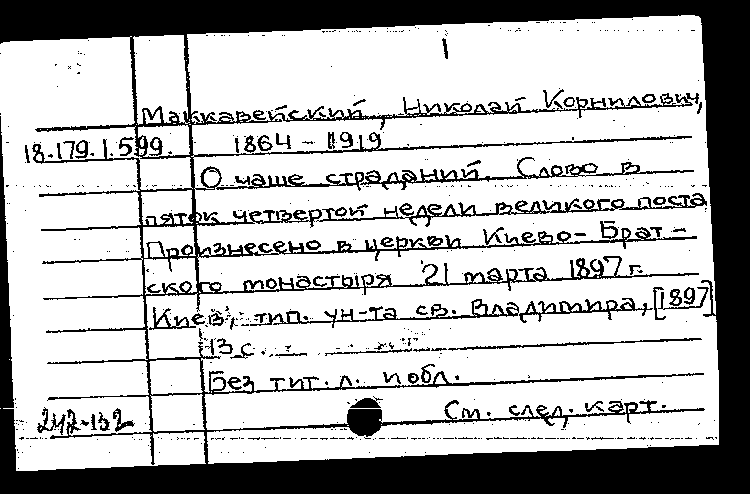 1
Маккавейский, Николай Корнилович,
18.179.1.599. 1864 - 1919
О чаше страданий. Слово в
пяток четвертой недели великого поста
Произнесено в церкви Киево-Брат-
ского монастыря 21 марта 1897 г.
Киев, тип. ун-та св. Владимира, [1897]
13 с.
Без тит. л. и обл.
242-152 См. след. карт.